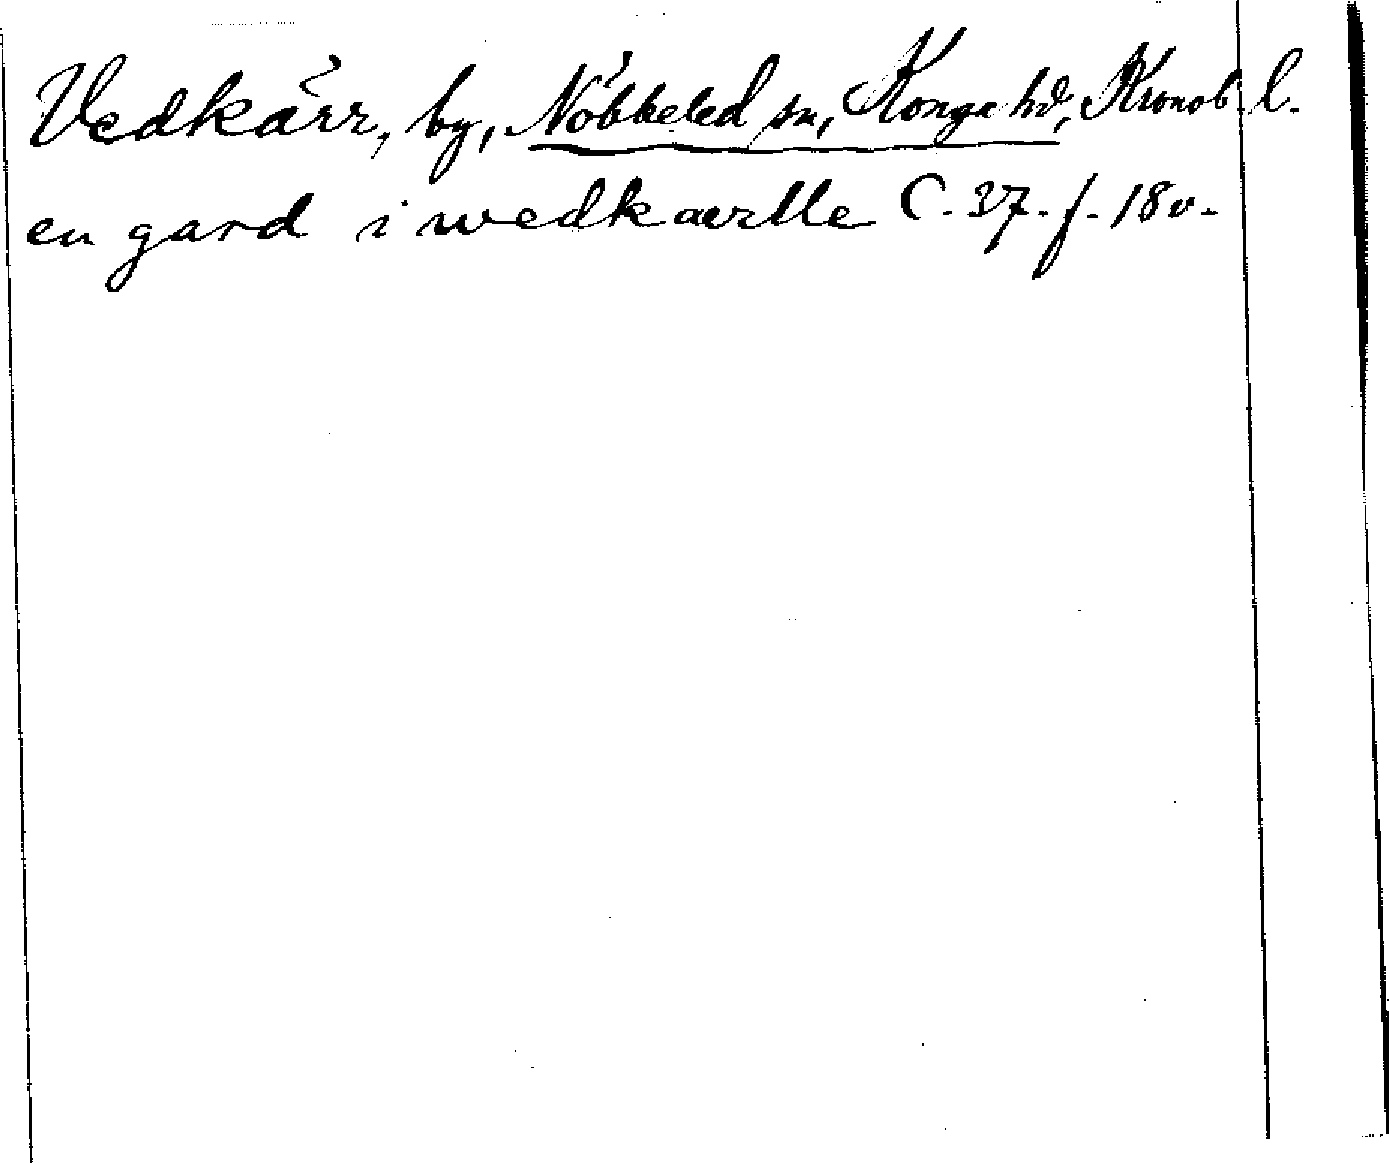 Vedkärr, by, Nöbbeled sn, Konga hd, Kronob. l.
en gard i wedkærlle C. 37. f. 18v.